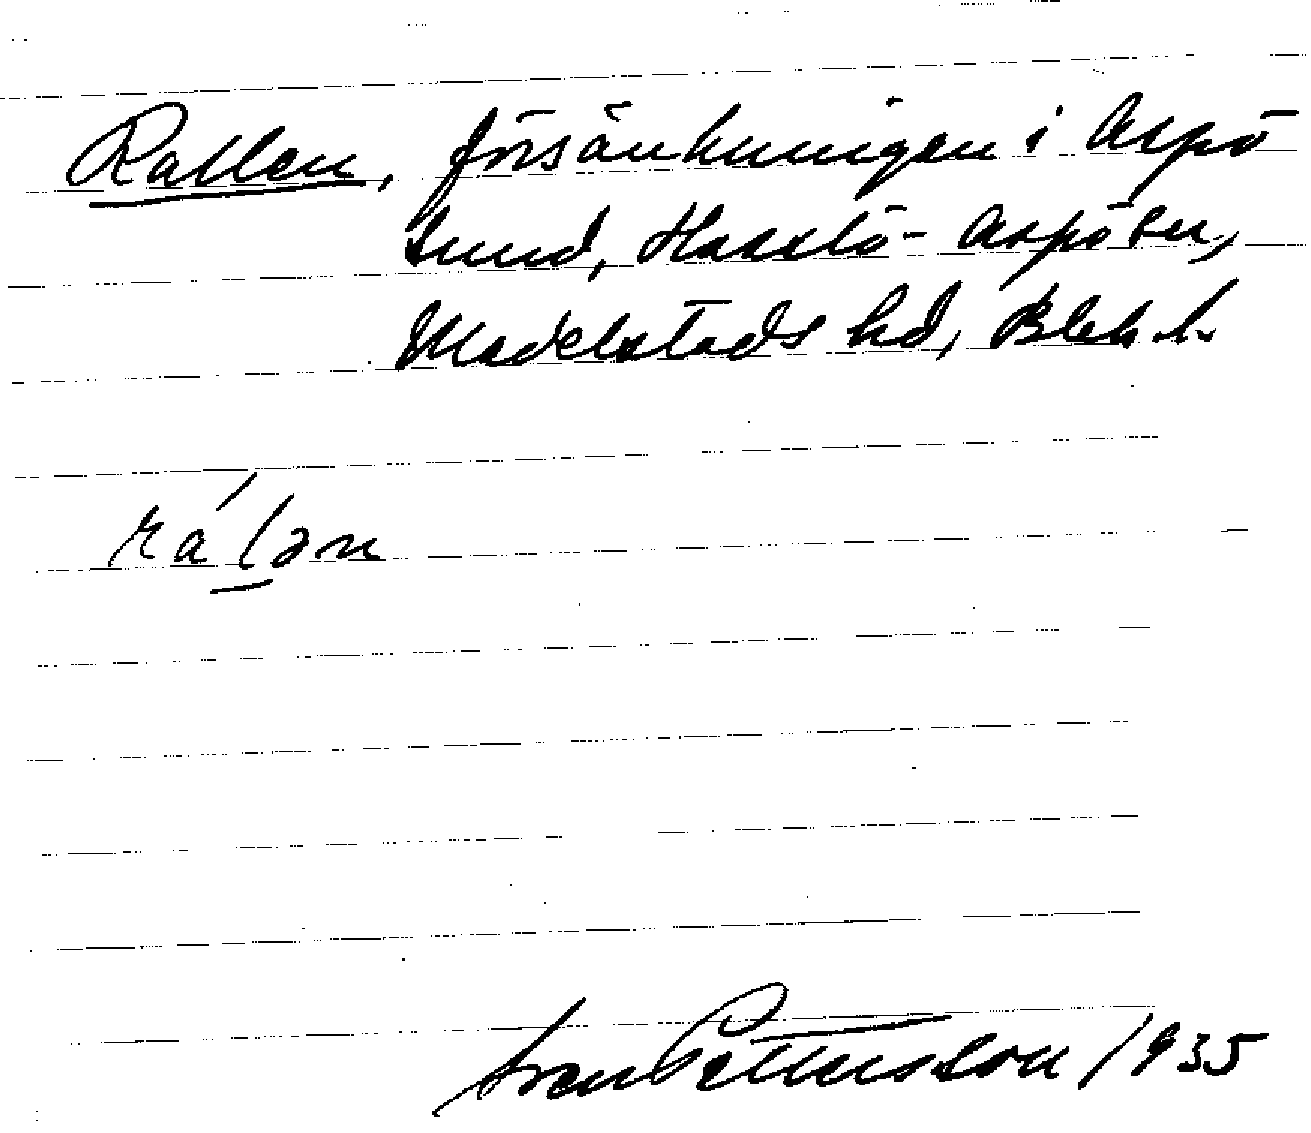 Rallen, försänkningen i Aspö
sund, Hasslö-Aspö sn,
Medelstads hd, Blek. l.
rálən
Sven Pettersson 1935